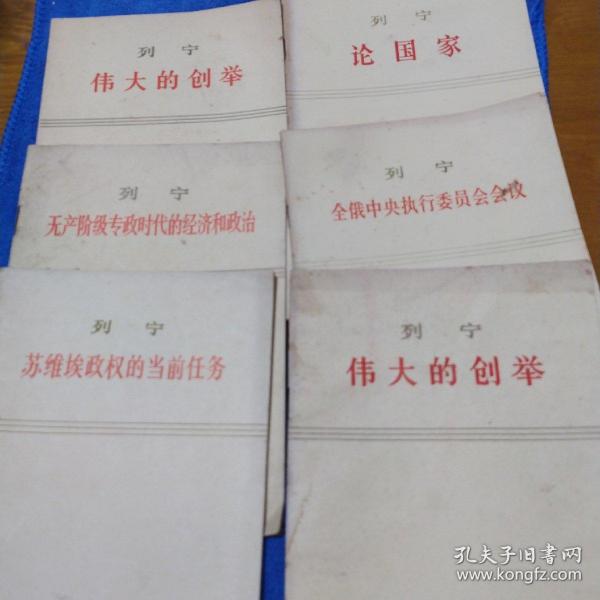 列宁
伟大的创举
列宁
论国家
列宁
无产阶级专政时代的经济和政治
列宁
全俄中央执行委员会会议
列宁
苏维埃政权的当前任务
列宁
伟大的创举
孔夫子旧书网
www.kongfz.com